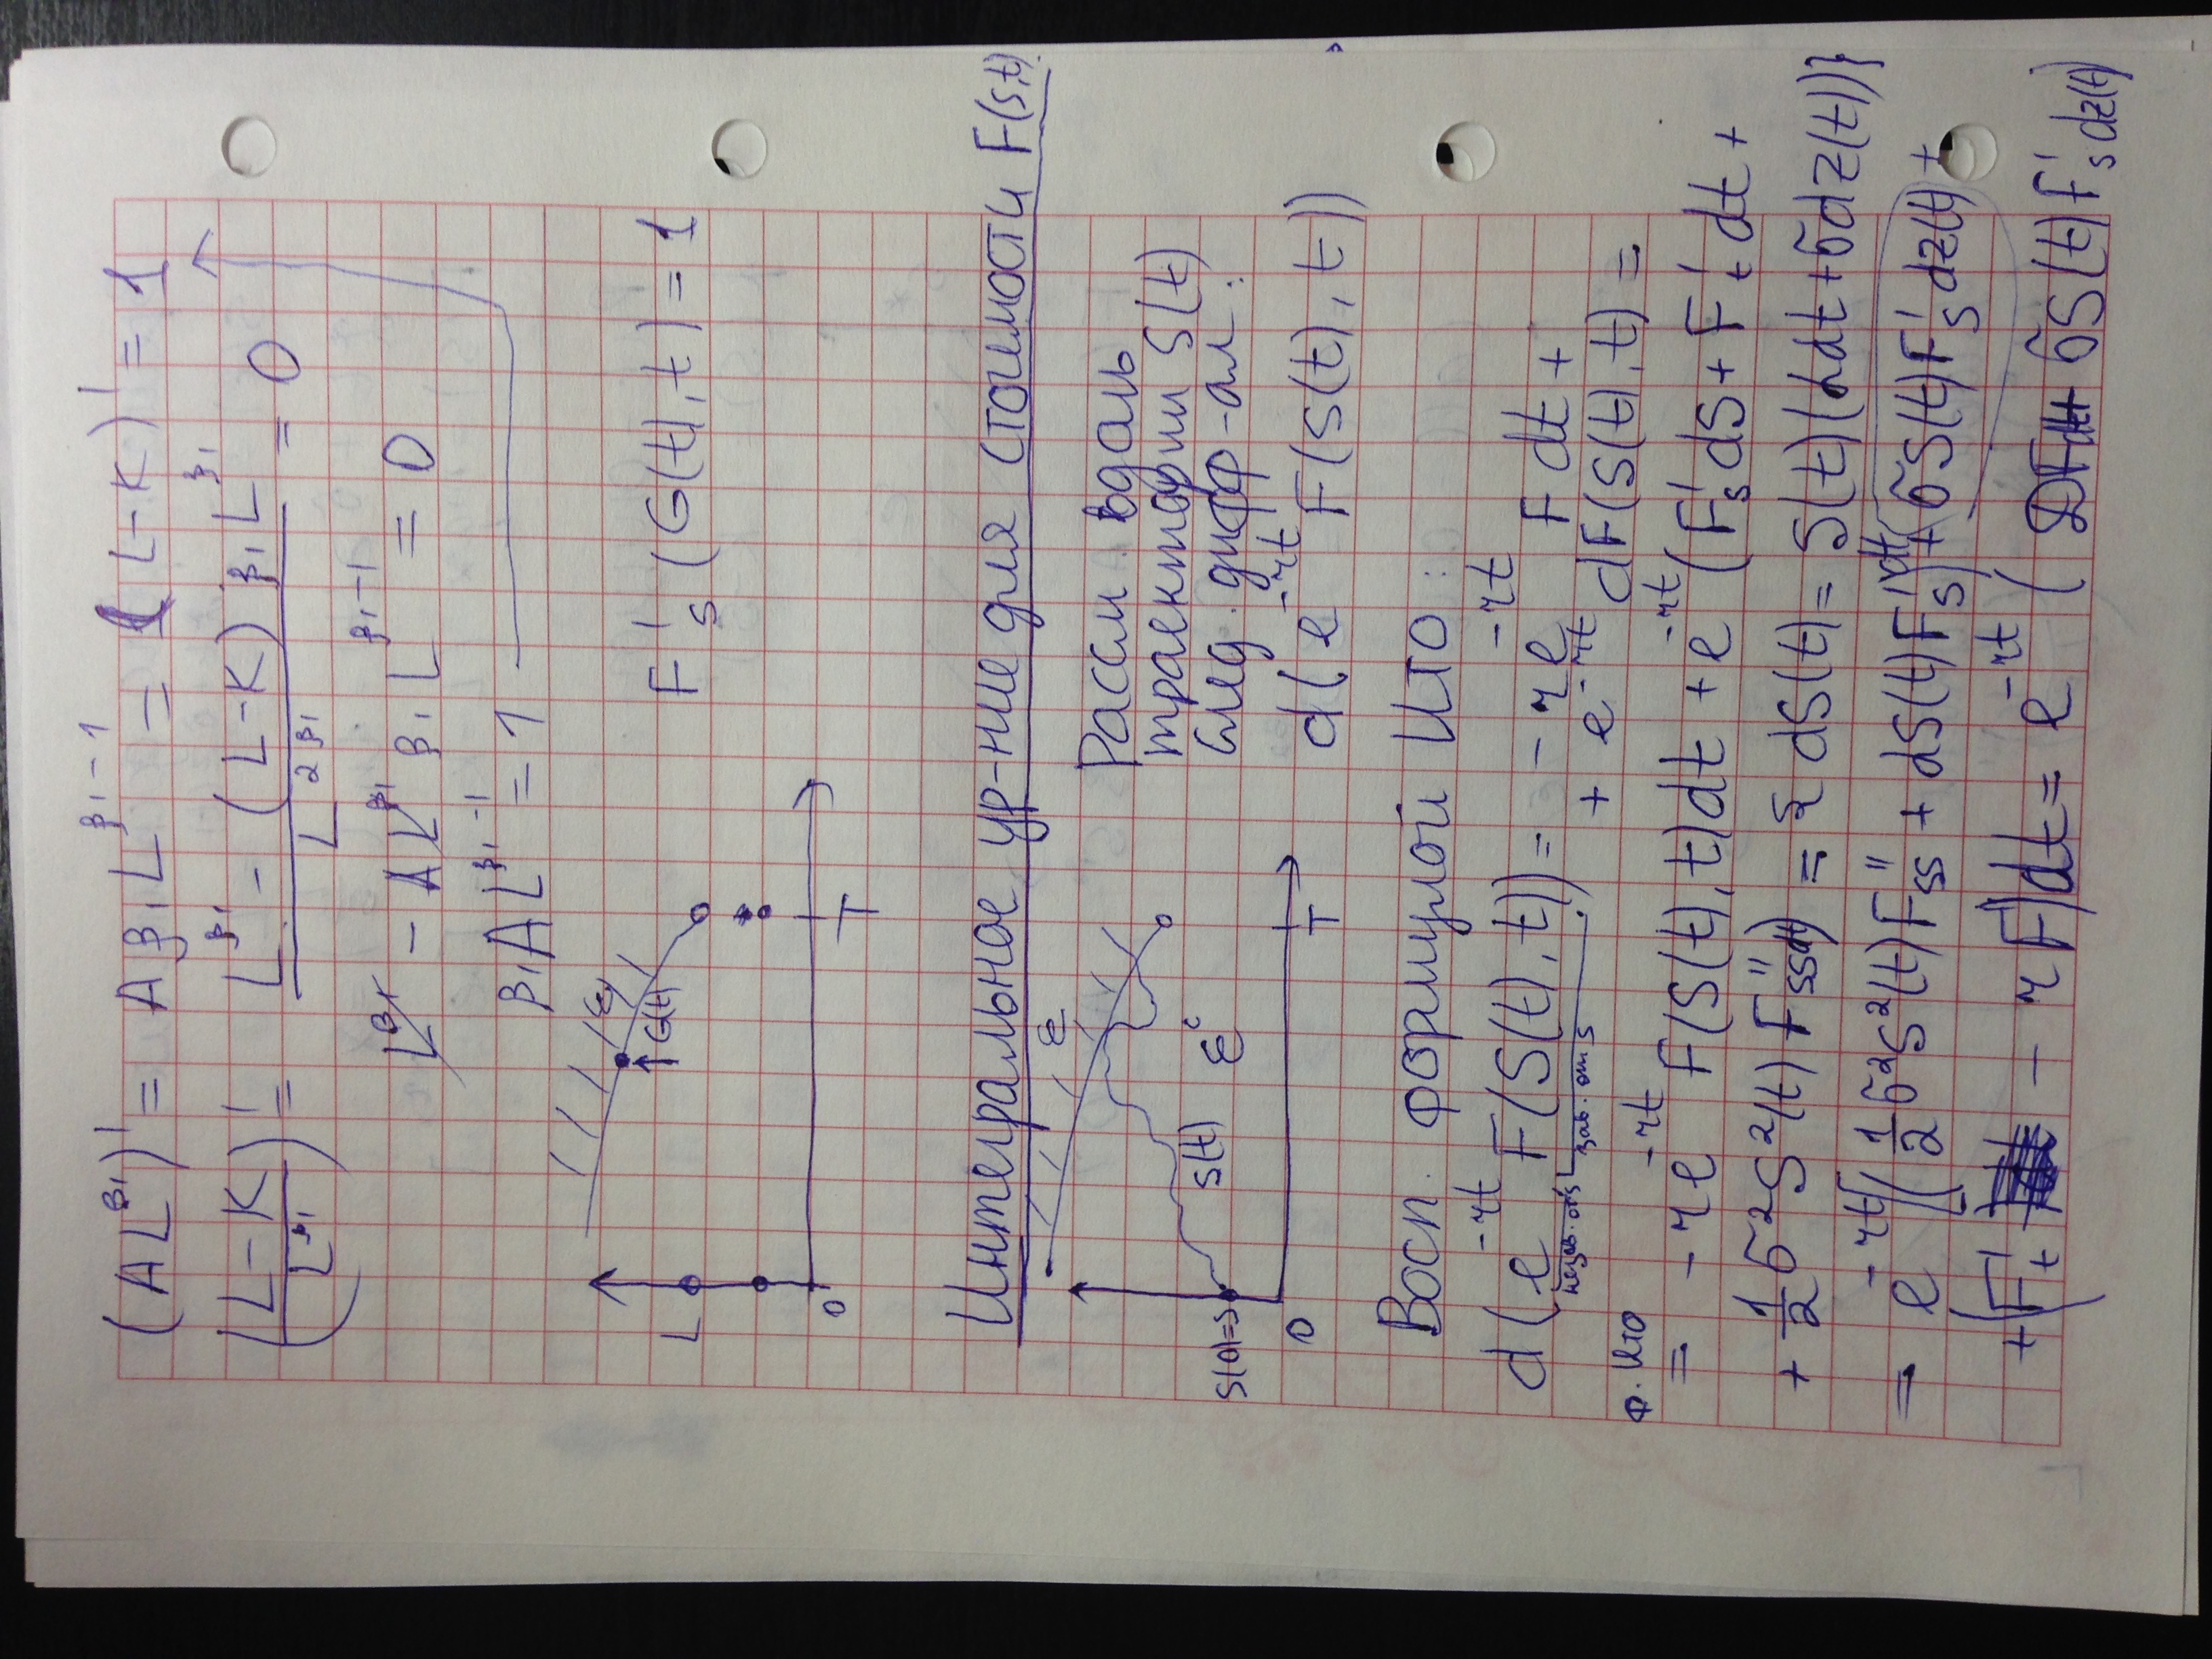 (AL^{β₁})' = Aβ₁L^{β₁-1} = (L-K)' = 1
((L-K)/L^{β₁})' = (L^{β₁} - (L-K)β₁L^{β₁})/L^{2β₁} = 0
L^{β₁} - AL^{β₁}β₁L^{β₁-1} = 0
β₁AL^{β₁-1} = 1
L
ε
G(t)
F'_s(G(t),t) = 1
0
T
Интегральное ур-ние для стоимости F(s,t).
ε
Рассм вдоль
траектории S(t)
след. дифф-ал:
d(e^{-rt} F(S(t),t))
S(t)
ε^c
S(0)=S
0
T
Восп. формулой Ито:
d(e^{-rt} F(S(t),t)) = -re^{-rt} F dt +
незав. от S
зав. от S
+ e^{-rt} dF(S(t),t) =
ф. Ито
= -re^{-rt} F(S(t),t)dt + e^{-rt}(F'_s dS + F'_t dt +
+ 1/2 σ²S²(t)F''_{ss}dt) = {dS(t) = S(t)(αdt+σdz(t))}
= e^{-rt}[(1/2 σ²S²(t)F''_{ss} + αS(t)F'_s)dt + σS(t)F'_s dz(t) +
+ (F'_t - rF)dt = e^{-rt}(DFdt + σS(t)F'_s dz(t)